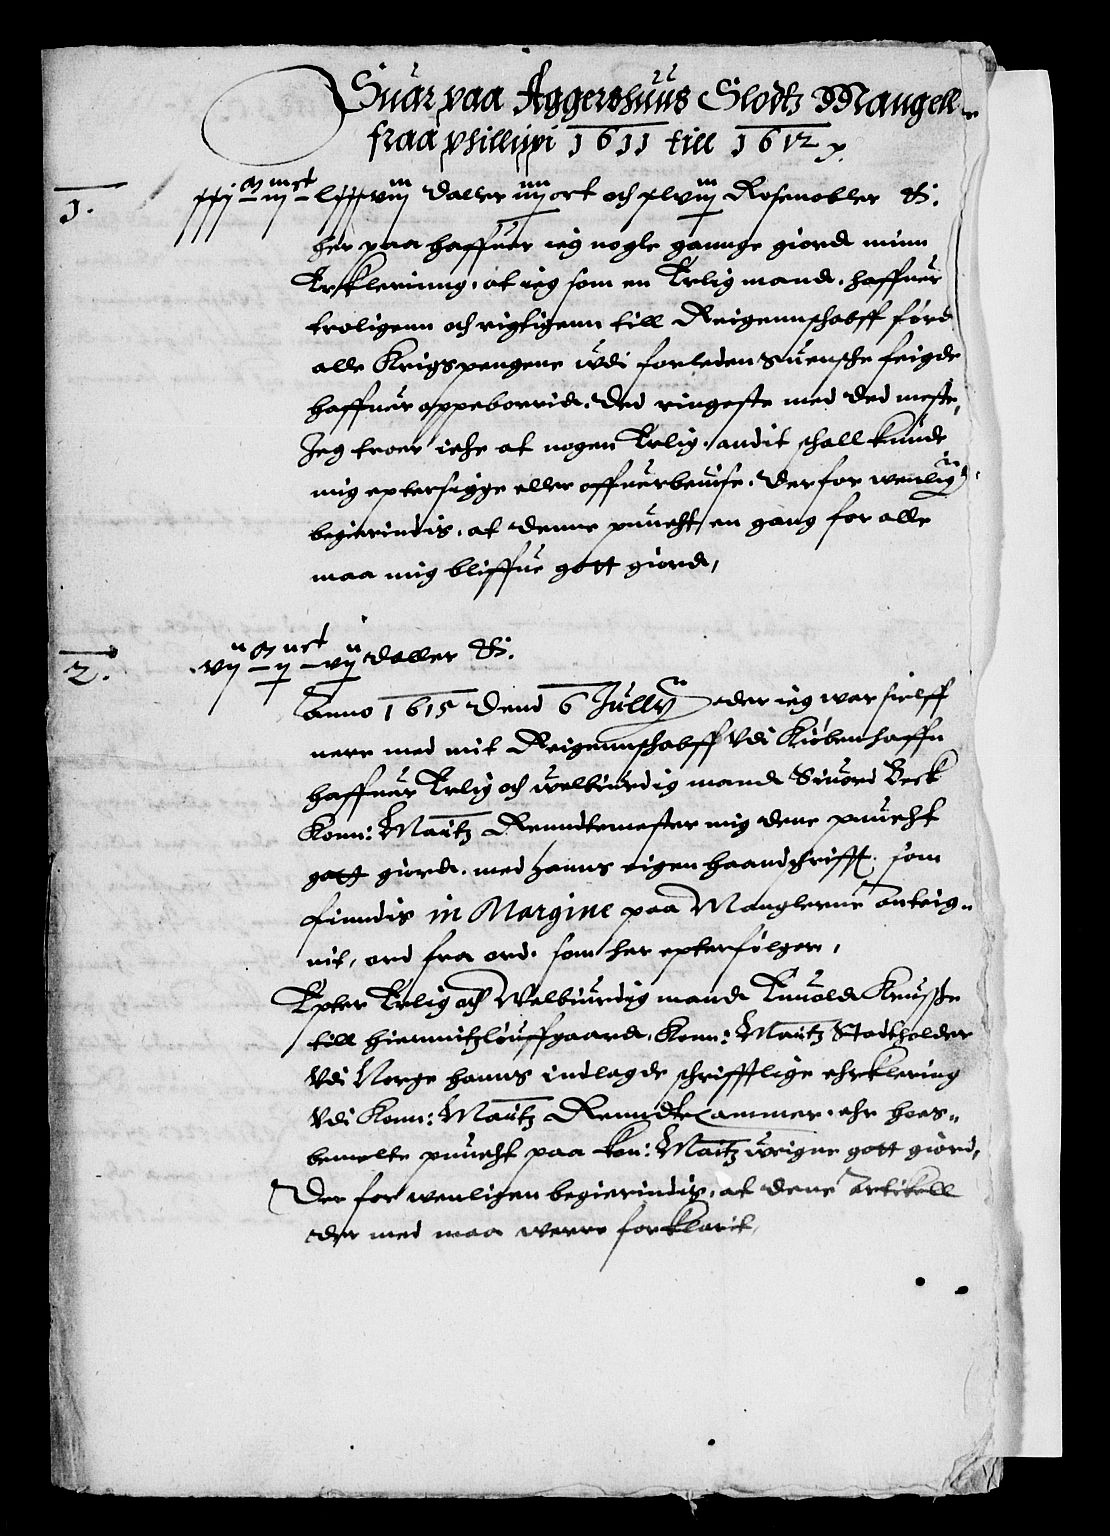 Suar paa Aggershuus Slodtz Mangell
fraa phillippi 1611 till 1612
1. daller ort och Rosenobler &:
her paa haffuer ieg nogle gannge giord minn
Erkleriung, at ieg som en Erlig mand, haffuer
troligenn och rigtigenn till Reigennschabff förd
alle Krigspengene udi forleden suensche feigde
haffuer oppeborrid. Ded ringeste med ded meste,
Jeg troer iche at nogen Erlig, andit schall kunde
mig eptersigge eller offuerbeuise. Derfor wenlig
begierindis, at denne puncht en gang for alle
maa mig bliffue gott giord,
2. daller &:
Anno 1615 Dend 6 Jully der ieg war sielff
nere med mit Reigennschabff Vdi Kiöbenhaffn
haffuer Erlig och welbiurdig mand Siuord Beck
Konn: Maÿtz Renndtemester mig dene puncht
gott giord, med hanns eigen haandschrifft. som
finndis in Margine paa Manglerne anteig=
nit, ord fra ord, som her epterfölger,
Epter Erlig och Welbiurdig mand Enuold Krusse
till hiermitzlöuffgaard, Konn: Maÿtz Stadtholder
Vdi Norge hanns indlagde schrifftlige ehrklering
Vdi Konn: Maÿtz Renndtecammer, ehr hoes=
bemelte puncht paa Kon: Maÿtz wegne gott giord,
Der for wenligen begierindis, at dene artikell
der med maa werre forklarit,